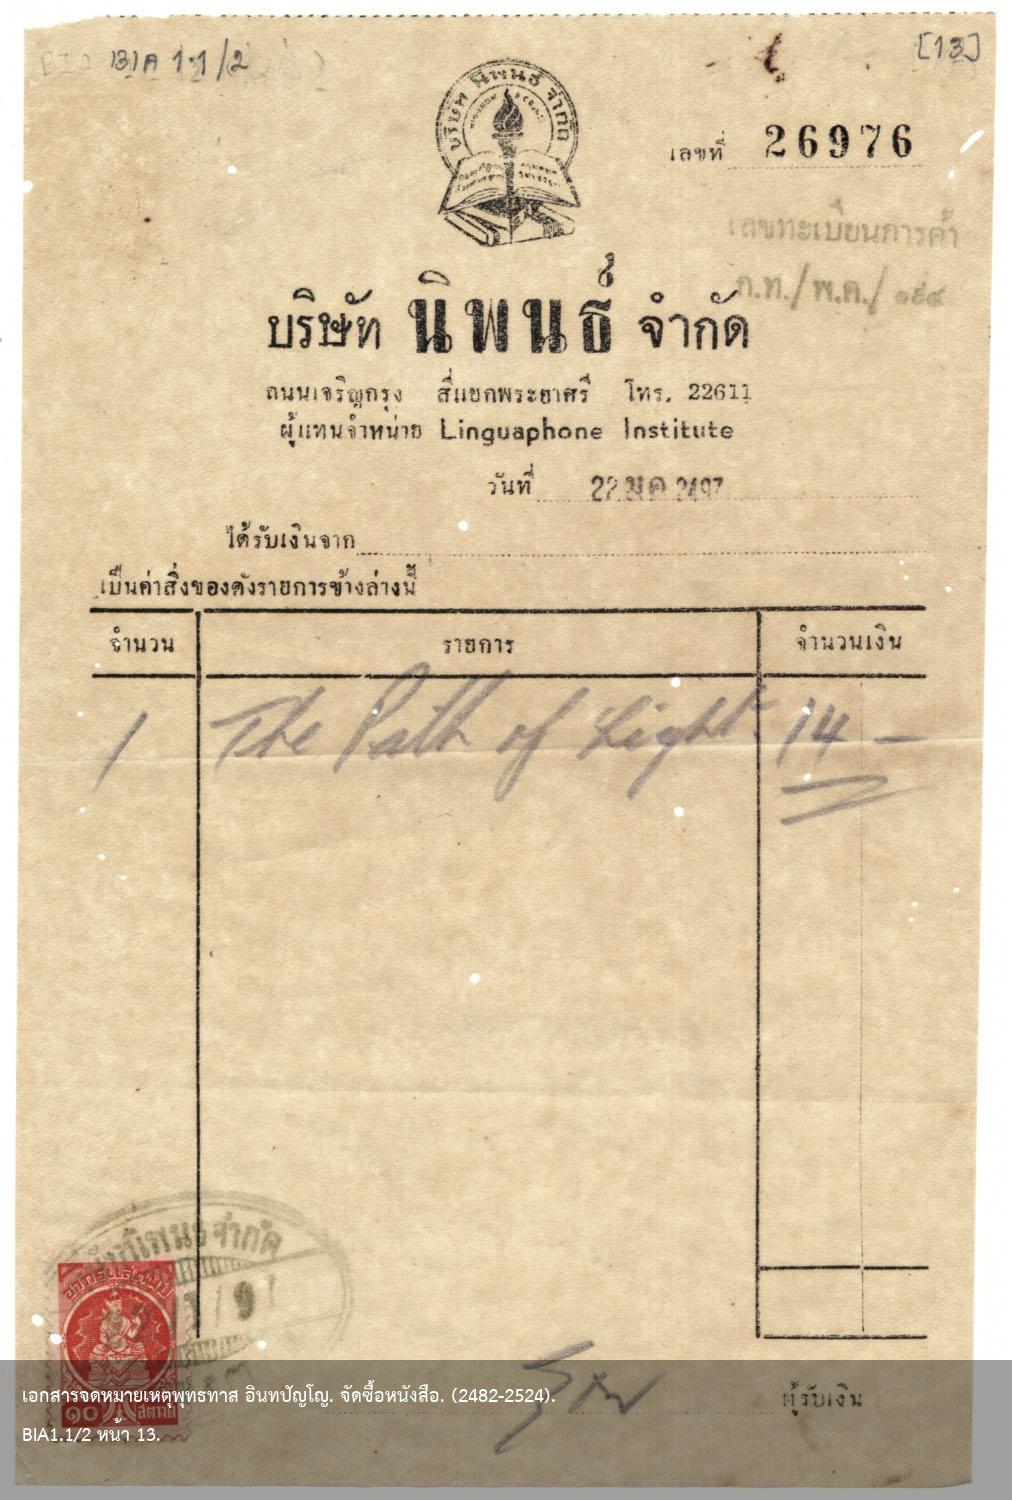 BIA 1.1/2
[13]
บริษัท นิพนธ์ จำกัด
เลขที่ 26976
เลขทะเบียนการค้า
ก.ท./พ.ค./๑๕๙
บริษัท นิพนธ์ จำกัด
ถนนเจริญกรุง สี่แยกพระยาศรี โทร. 22611
ผู้แทนจำหน่าย Linguaphone Institute
วันที่ 22 มค 2497
ได้รับเงินจาก
เป็นค่าสิ่งของดังรายการข้างล่างนี้
จำนวน รายการ จำนวนเงิน
1 The Path of Light. 14 —
บริษัทนิพนธ์จำกัด
อากรแสตมป์
๑๐ สตางค์
ผู้รับเงิน
เอกสารจดหมายเหตุพุทธทาส อินทปัญโญ. จัดซื้อหนังสือ. (2482-2524).
BIA1.1/2 หน้า 13.